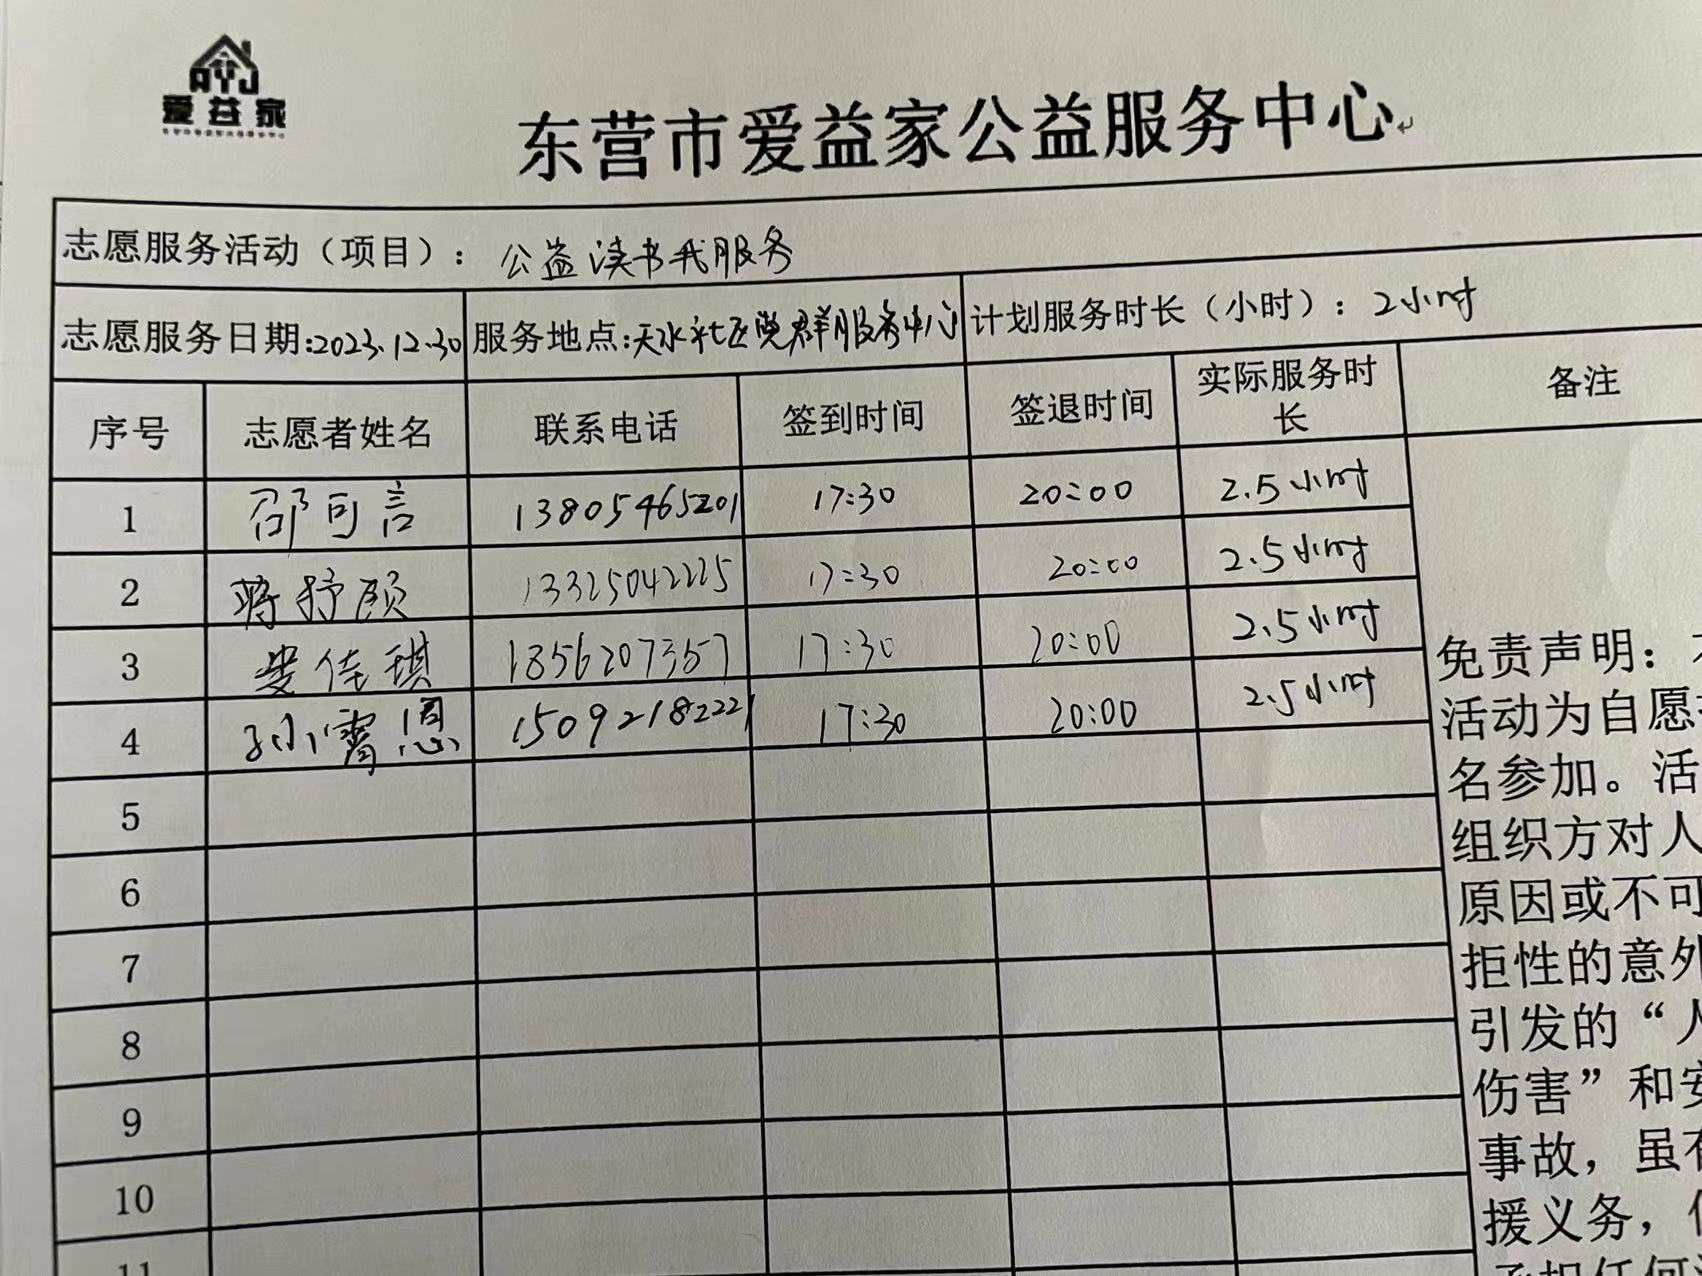 AYJ
爱益家
东营市爱益家公益服务中心
志愿服务活动（项目）：公益读书我服务
志愿服务日期:2023.12.30 服务地点:天水社区党群服务中心 计划服务时长（小时）：2小时
序号 志愿者姓名 联系电话 签到时间 签退时间 实际服务时长 备注
1 邵可言 13805465201 17:30 20:00 2.5小时
2 蒋抒颀 13325042225 17:30 20:00 2.5小时
3 娄佳琪 18562073557 17:30 20:00 2.5小时
4 孙霄恩 15092182221 17:30 20:00 2.5小时
5
6
7
8
9
10
11
免责声明：
活动为自愿
名参加。活
组织方对人
原因或不可
拒性的意外
引发的“人
伤害”和安
事故，虽有
援义务，但
承担任何